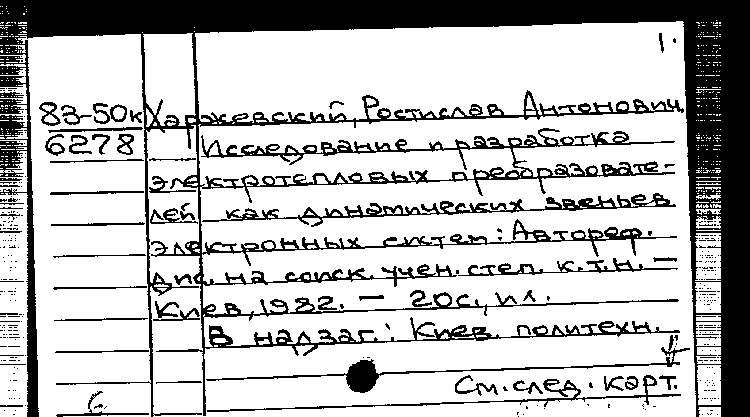 1.
83-50к Харжевский, Ростислав Антонович.
6278 Исследование и разработка
электротепловых преобразовате-
лей как динамических звеньев
электронных систем: Автореф.
дис. на соиск. учен. степ. к.т.н. —
Киев, 1982. — 20с., ил.
В надзаг.: Киев. политехн.
См. след. карт.
6